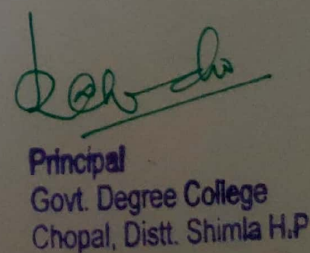 Principal
Govt. Degree College
Chopal, Distt. Shimla H.P